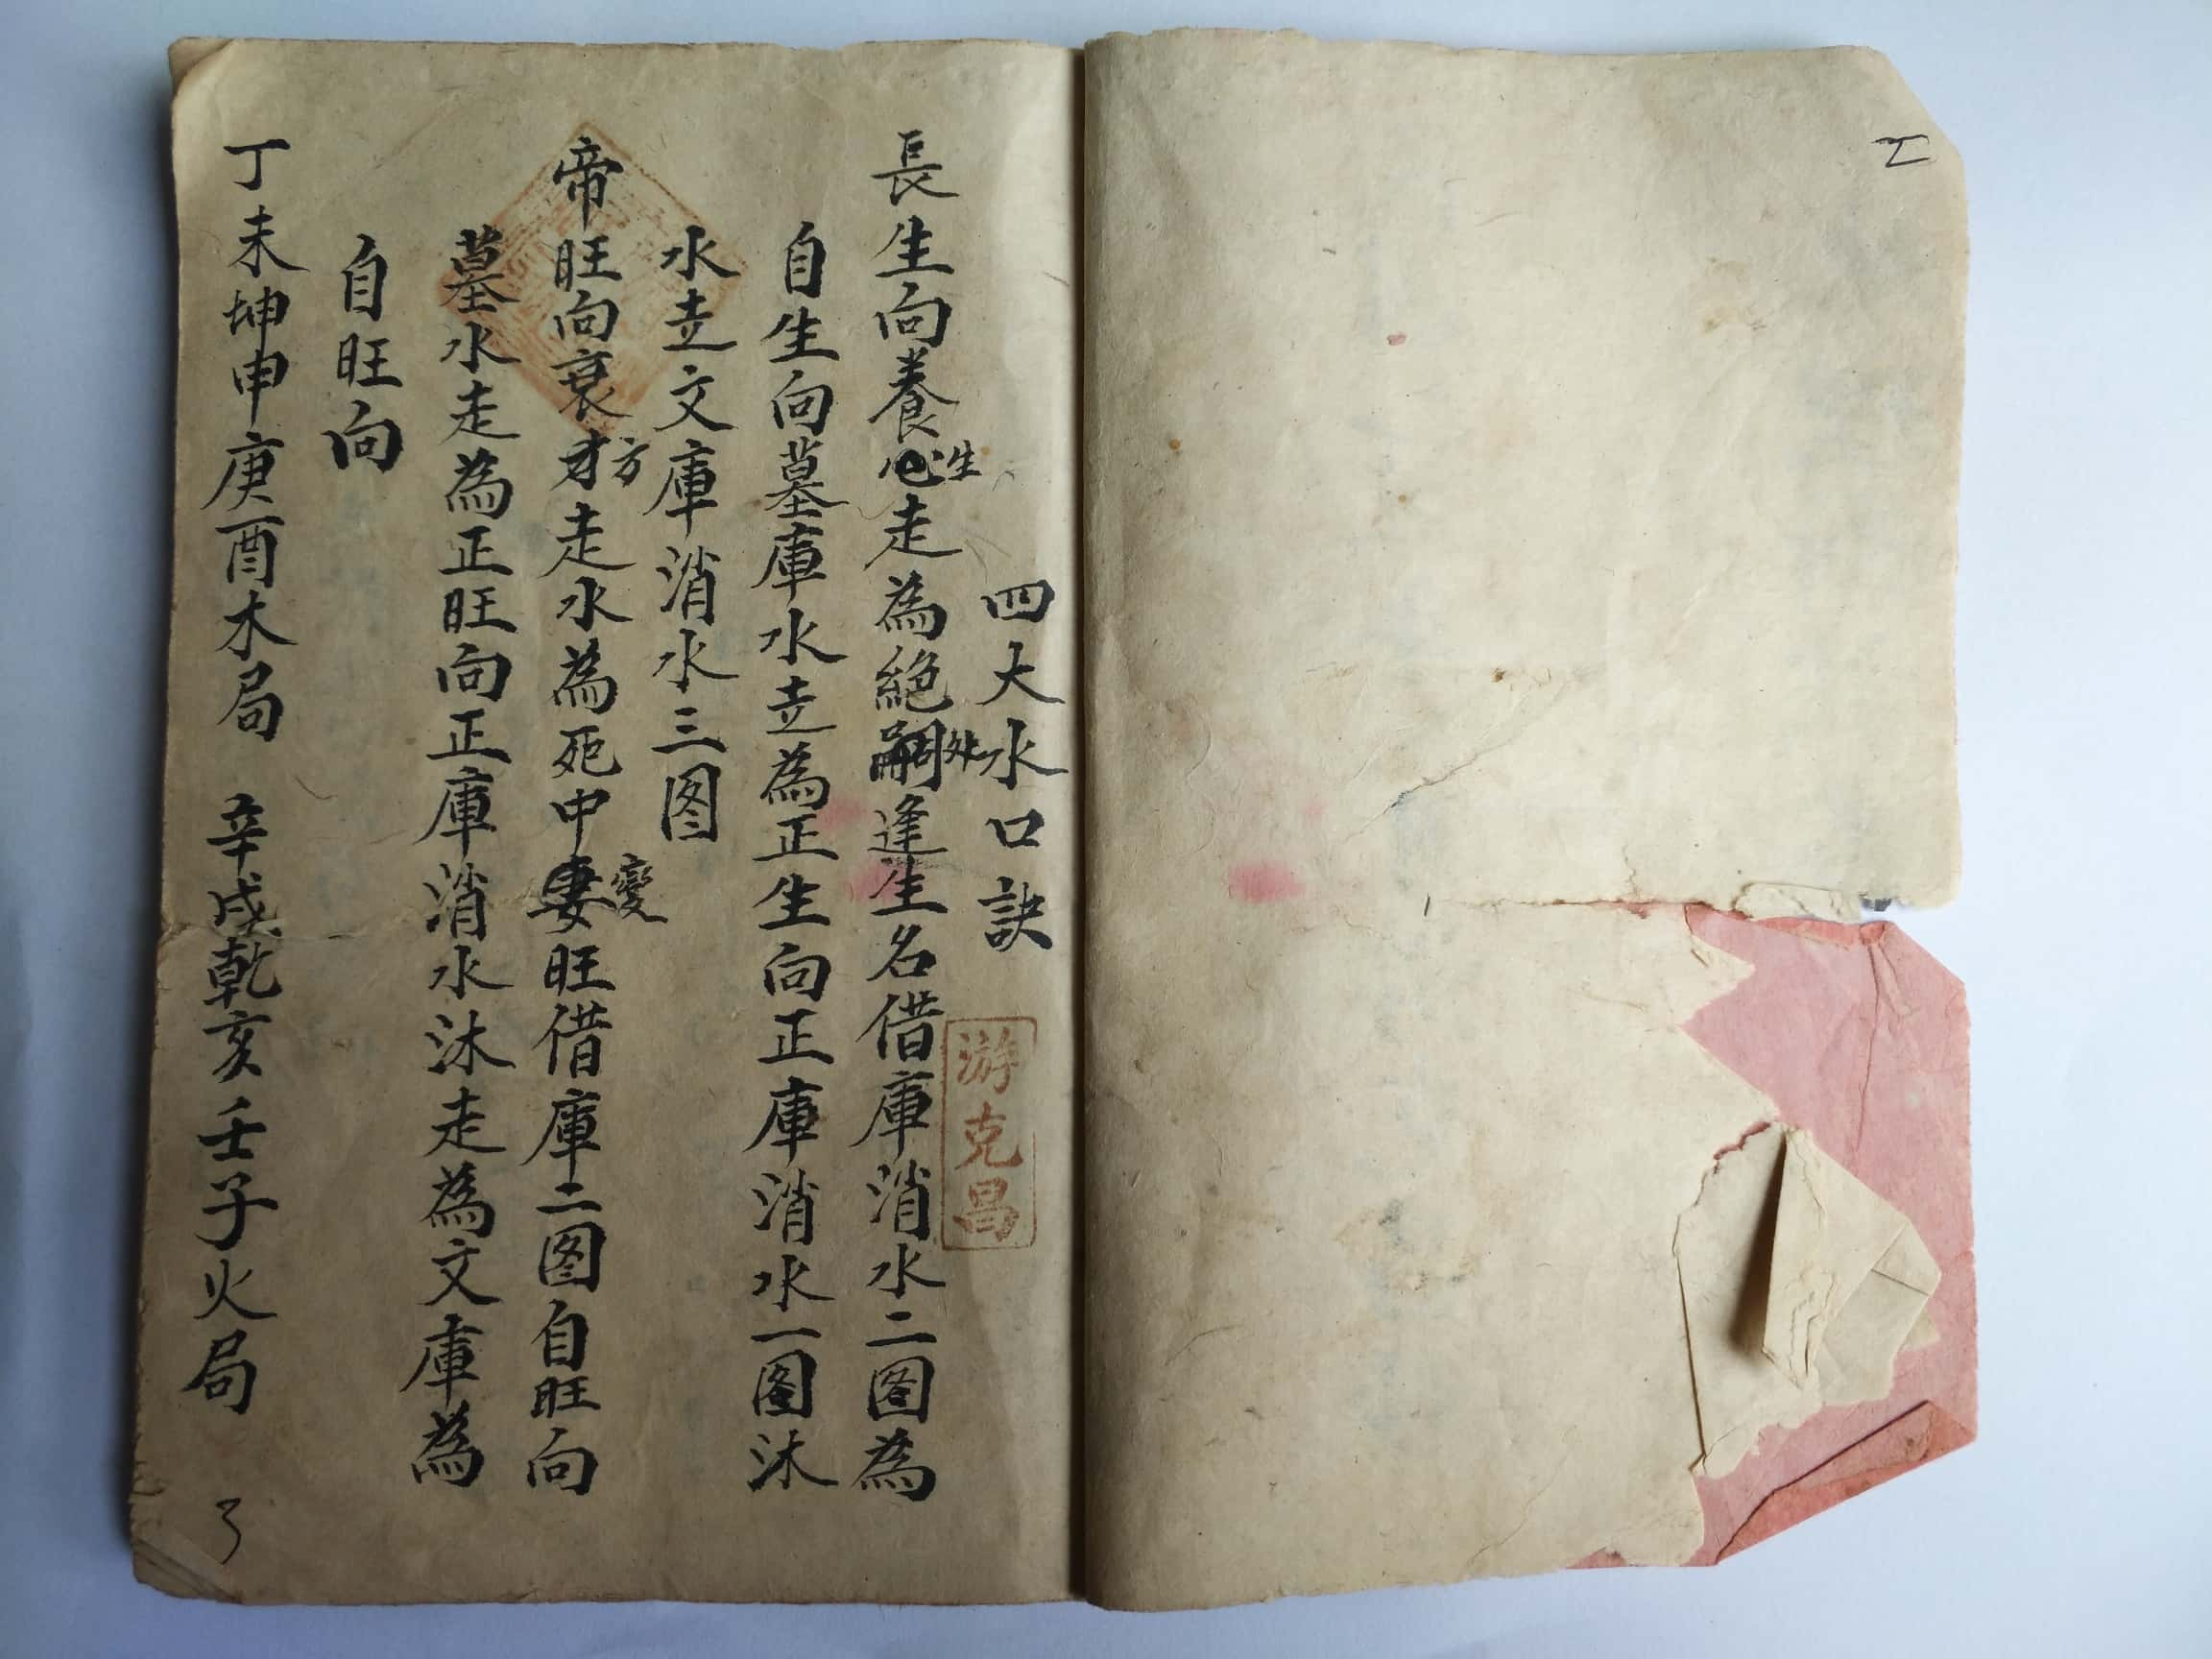 四大水口訣
游克昌
長生向養生走為絕處逢生名借庫消水二图為
自生向墓庫水走為正生向正庫消水一图沐
水走文庫消水三图
帝旺向衰方走水為死中變旺借庫二图自旺向
墓水走為正旺向正庫消水沐走為文庫為
自旺向
丁未坤申庚酉木局 辛戌乾亥壬子火局
3